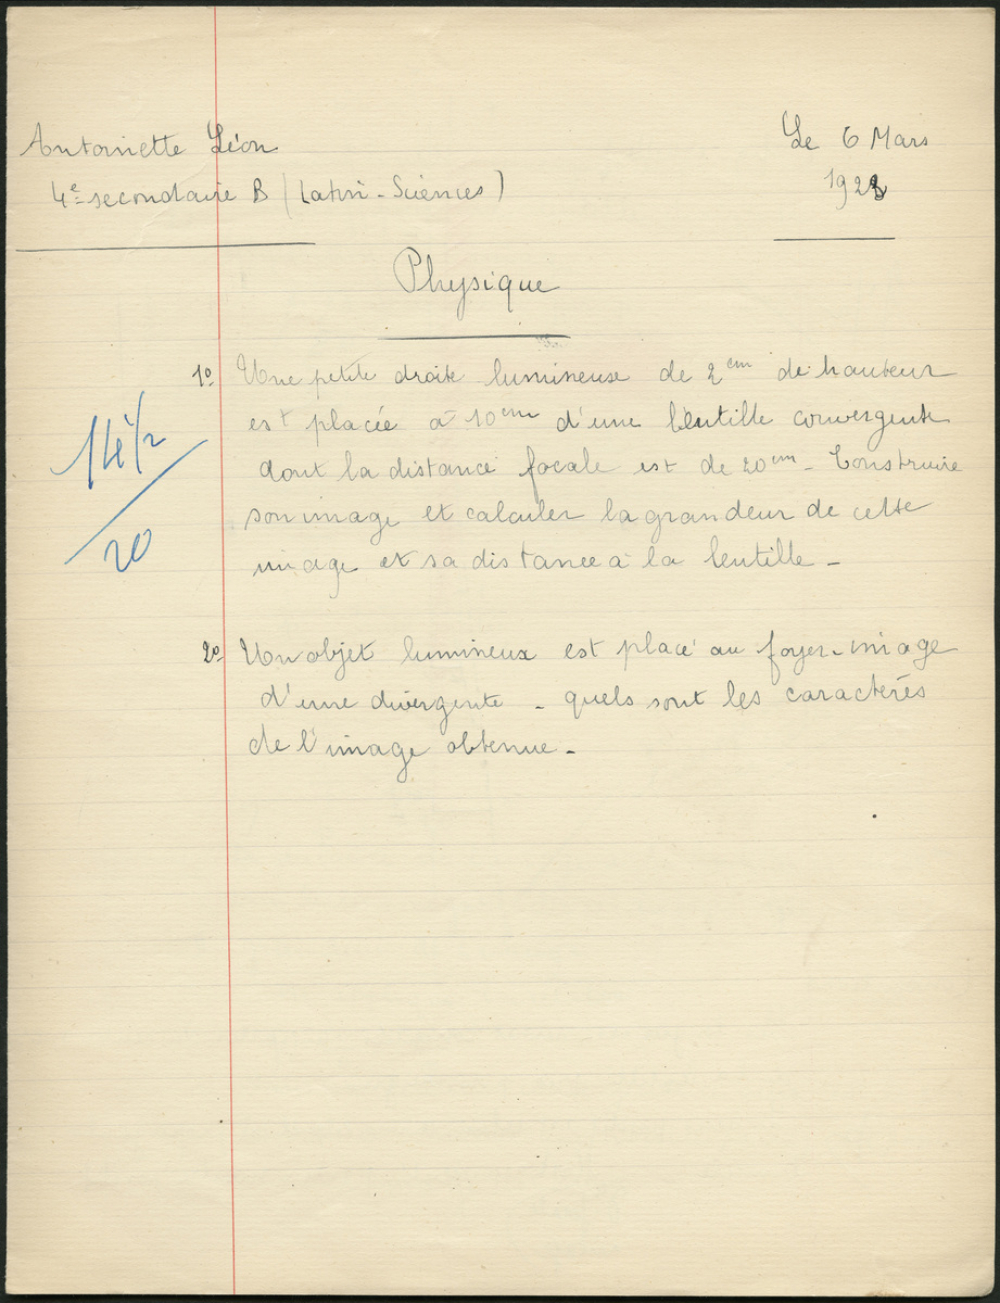 Antoinette Léon
Le 6 Mars
4e secondaire B (Latin-Sciences)
1928
Physique
1º Une petite droite lumineuse de 2cm de hauteur
est placée à 10cm d'une lentille convergente
14 1/2
dont la distance focale est de 20cm - Construire
son image et calculer la grandeur de cette
20
image et sa distance à la lentille -
2º Un objet lumineux est placé au foyer-image
d'une divergente - quels sont les caractères
de l'image obtenue -